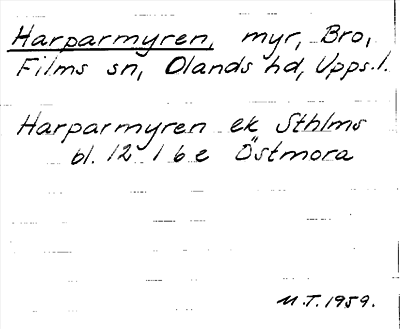 Harparmyren, myr, Bro,
Films sn, Olands hd, Upps.l.
Harparmyren ek Sthlms
bl. 12 I 6 e Östmora
M.T. 1959.